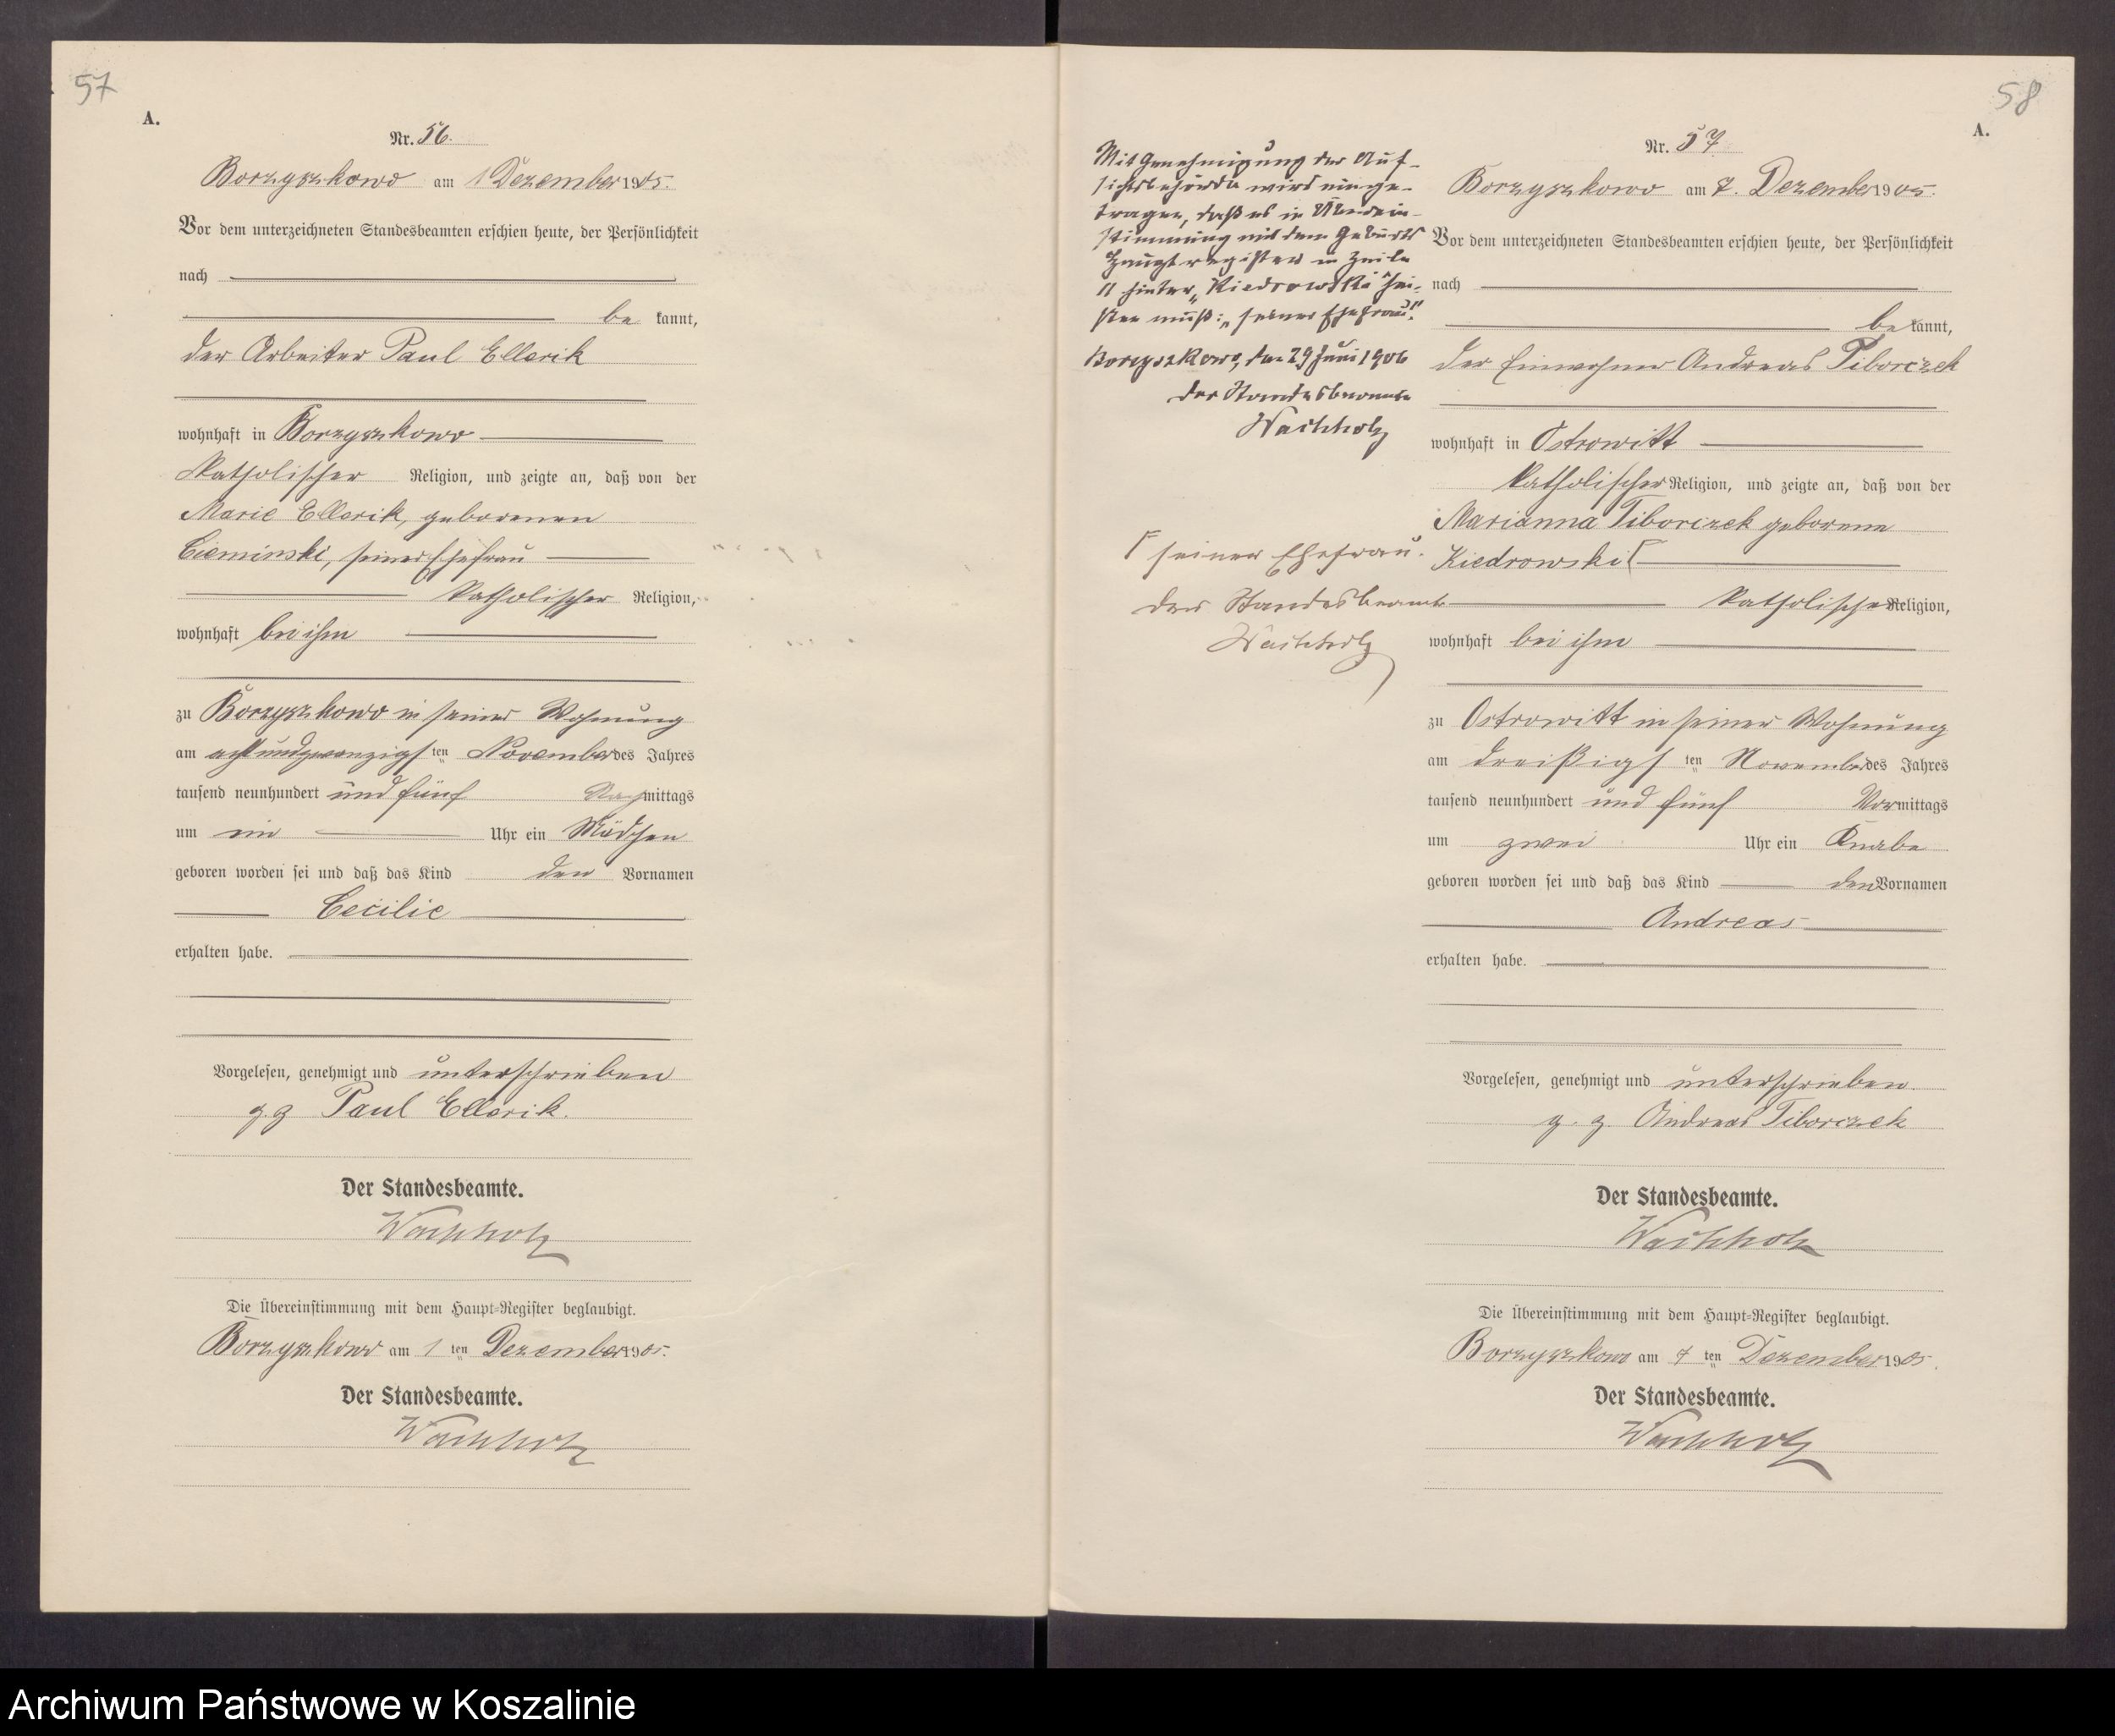 57
A.
Nr. 56.
Borzyszkowo am 1 Dezember 1905.
Vor dem unterzeichneten Standesbeamten erschien heute, der Persönlichkeit
nach
be kannt,
der Arbeiter Paul Ellerik
wohnhaft in Borzyszkowo
katholischer Religion, und zeigte an, daß von der
Marie Ellerik, geborenen
Cieminski, seiner Ehefrau
katholischer Religion,
wohnhaft bei ihm
zu Borzyszkowo in seiner Wohnung
am achtundzwanzigsten November des Jahres
tausend neunhundert und fünf Nachmittags
um ein Uhr ein Mädchen
geboren worden sei und daß das Kind den Vornamen
Cecilie
erhalten habe.
Vorgelesen, genehmigt und unterschrieben
g. g Paul Ellerik.
Der Standesbeamte.
Wachholz
Die Übereinstimmung mit dem Haupt-Register beglaubigt.
Borzyszkowo am 1 ten Dezember 1905.
Der Standesbeamte.
Wachholz
58
A.
Mit Genehmigung der Auf-
sichtsbehörde wird einge-
tragen, daß es in Überein-
stimmung mit dem Geburts
Hauptregister in Zeile
11 hinter „Kiedrowski" hei-
sten muß: „seiner Ehefrau".
Borzyszkowo, den 29 Juni 1906
Der Standesbeamte
Wachholz
Γ seiner Ehefrau.
Der Standesbeamte
Wachholz
Nr. 57
Borzyszkowo am 7. Dezember 1905.
Vor dem unterzeichneten Standesbeamten erschien heute, der Persönlichkeit
nach
be kannt,
der Einwohner Andreas Tiborczek
wohnhaft in Ostrowitt
katholischer Religion, und zeigte an, daß von der
Marianna Tiborczek geborene
Kiedrowski Γ
katholischer Religion,
wohnhaft bei ihm
zu Ostrowitt in seiner Wohnung
am dreißigsten November des Jahres
tausend neunhundert und fünf Vormittags
um zwei Uhr ein Knabe
geboren worden sei und daß das Kind den Vornamen
Andreas
erhalten habe.
Vorgelesen, genehmigt und unterschrieben
g. g. Andreas Tiborczek
Der Standesbeamte.
Wachholz
Die Übereinstimmung mit dem Haupt-Register beglaubigt.
Borzyszkowo am 7 ten Dezember 1905.
Der Standesbeamte.
Wachholz
Archiwum Państwowe w Koszalinie